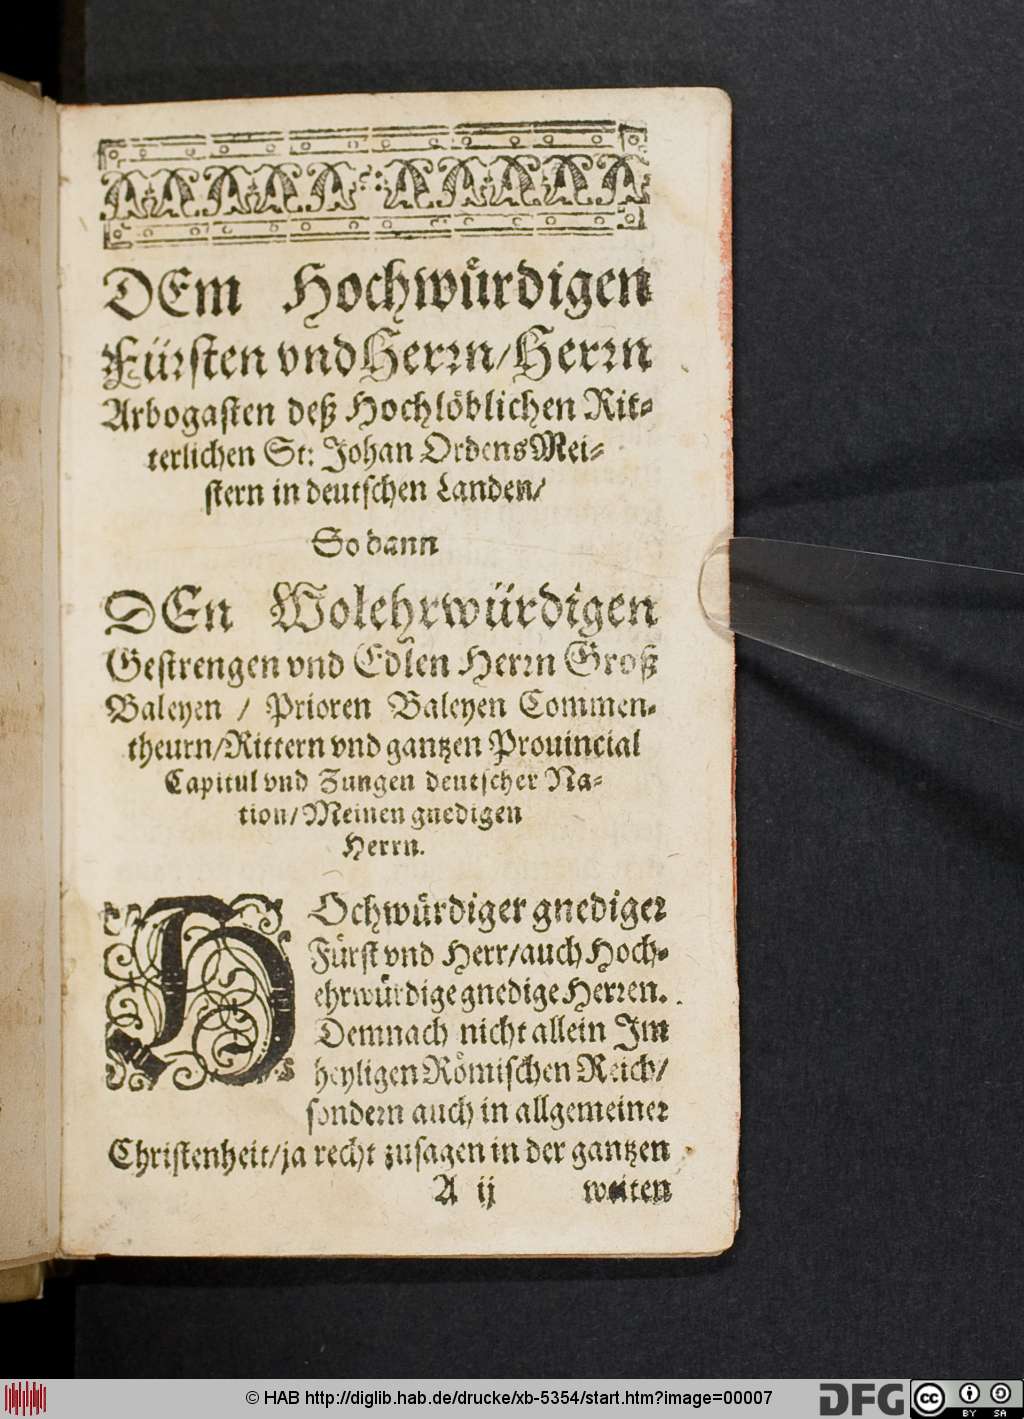 DEm Hochwürdigen
Fürsten vnd Herrn/Herrn
Arbogasten deß Hochlöblichen Rit-
terlichen St: Johan Ordens Mei-
stern in deutschen Landen/
So dann
DEn Wolehrwürdigen
Gestrengen vnd Edlen Herrn Groß
Baleyen / Prioren Baleyen Commen-
theurn/Rittern vnd gantzen Prouincial
Capitul vnd Zungen deutscher Na-
tion/Meinen gnedigen
Herrn.
HOchwürdiger gnediger
Fürst vnd Herr/auch Hoch-
ehrwürdige gnedige Herren.
Demnach nicht allein Im
heyligen Römischen Reich/
sondern auch in allgemeiner
Christenheit/ja recht zusagen in der gantzen
A ij weiten
© HAB http://diglib.hab.de/drucke/xb-5354/start.htm?image=00007
DFG
cc
BY SA